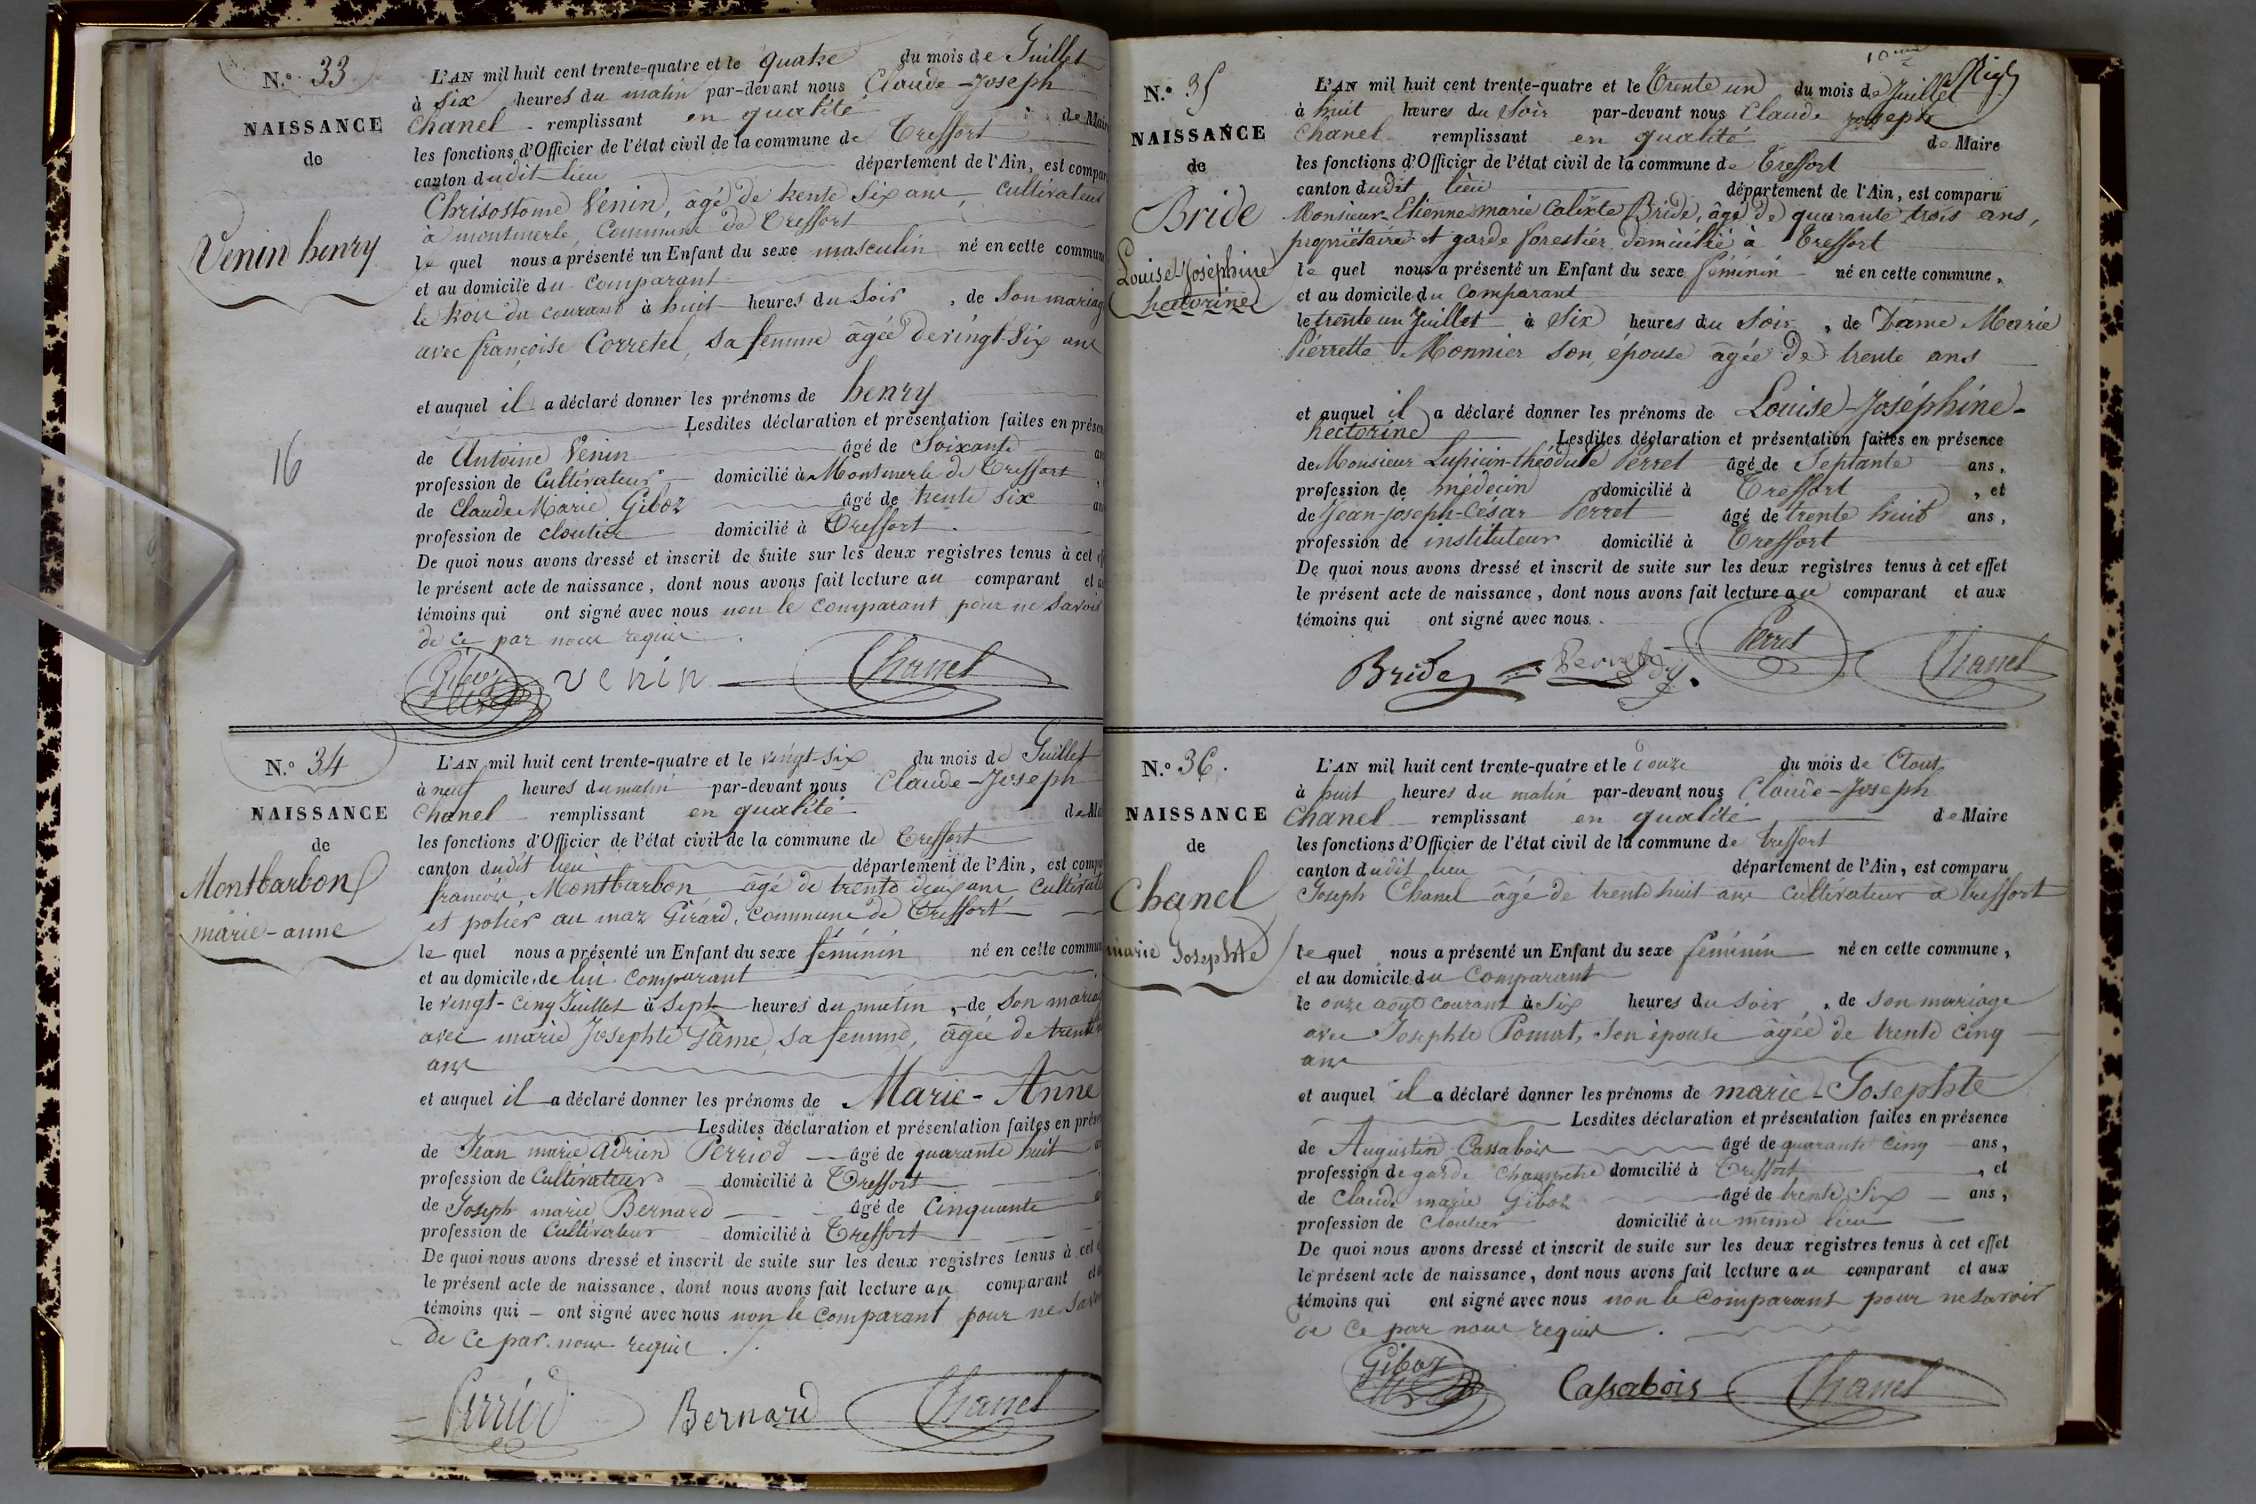 N.° 33
NAISSANCE
de
Venin henry
16
L'AN mil huit cent trente-quatre et le quatre du mois de Juillet
à six heures du matin par-devant nous Claude-Joseph
Chanel remplissant en qualité de Mair
les fonctions d'Officier de l'état civil de la commune de Treffort
canton dudit lieu département de l'Ain, est compar
Chrisostome Venin, agé de trente six ans, cultivateur
à montmerle, Commune de Treffort
le quel nous a présenté un Enfant du sexe masculin né en cette commun
et au domicile du comparant
le trois du courant à huit heures du Soir, de Son mariag
avec françoise Corretel, sa femme âgée de vingt-six ans
et auquel il a déclaré donner les prénoms de henry
Lesdites déclaration et présentation faites en présen
de Antoine Venin âgé de Soixante an
profession de Cultivateur domicilié à Montmerle de Treffort,
de Claude Marie Giboz âgé de trente six an
profession de cloutier domicilié à Treffort.
De quoi nous avons dressé et inscrit de suite sur les deux registres tenus à cet ef
le présent acte de naissance, dont nous avons fait lecture au comparant et a
témoins qui ont signé avec nous non le comparant pour ne savoir
de ce par nous requis.
Giboz Venin Chanel
N.° 34
NAISSANCE
de
Montbarbon
marie-anne
L'AN mil huit cent trente-quatre et le vingt-six du mois de Juillet
à neuf heures du matin par-devant nous Claude-Joseph
Chanel remplissant en qualité de Ma
les fonctions d'Officier de l'état civil de la commune de Treffort
canton dudit lieu département de l'Ain, est compa
françois Montbarbon âgé de trente deux ans cultivate
et potier au maz Girard, commune de Treffort
le quel nous a présenté un Enfant du sexe féminin né en cette commun
et au domicile de lui comparant
le vingt-cinq Juillet à Sept heures du matin, de Son maria
avec marie Josephte Fâme, sa femme, âgée de trente
ans
et auquel il a déclaré donner les prénoms de Marie-Anne
Lesdites déclaration et présentation faites en prése
de Jean marie adrien Perriod âgé de quarante huit
profession de Cultivateur domicilié à Treffort
de Joseph marie Bernard âgé de Cinquante
profession de Cultivateur domicilié à Treffort
De quoi nous avons dressé et inscrit de suite sur les deux registres tenus à cet
le présent acte de naissance, dont nous avons fait lecture au comparant et
témoins qui ont signé avec nous non le comparant pour ne savo
de ce par nous requis.
Perriod Bernard Chanel
10me
N.° 35
NAISSANCE
de
Bride
Louise-Joséphine
hectorine
L'AN mil huit cent trente-quatre et le Trente un du mois de Juillet
à huit heures du Soir par-devant nous Claude joseph
Chanel remplissant en qualité de Maire
les fonctions d'Officier de l'état civil de la commune de Treffort
canton dudit lieu département de l'Ain, est comparu
Monsieur Etienne marie Calixte Bride, âgé de quarante trois ans,
propriétaire et garde forestier domicilié à Treffort
le quel nous a présenté un Enfant du sexe féminin né en cette commune,
et au domicile du Comparant
le trente un Juillet à Six heures du Soir, de Dame Marie
Pierrette Monnier son épouse âgée de trente ans
et auquel il a déclaré donner les prénoms de Louise-Joséphine-
hectorine Lesdites déclaration et présentation faites en présence
de Monsieur Lupicin-théodule Perret âgé de Septante ans,
profession de médecin domicilié à Treffort, et
de Jean-joseph-César Perret âgé de trente huit ans,
profession de instituteur domicilié à Treffort
De quoi nous avons dressé et inscrit de suite sur les deux registres tenus à cet effet
le présent acte de naissance, dont nous avons fait lecture au comparant et aux
témoins qui ont signé avec nous.
Bride Perret Perret Chanel
N.° 36.
NAISSANCE
de
Chanel
marie Josephte
L'AN mil huit cent trente-quatre et le Douze du mois de Aout
à huit heures du matin par-devant nous Claude-Joseph
Chanel remplissant en qualité de Maire
les fonctions d'Officier de l'état civil de la commune de Treffort
canton dudit lieu département de l'Ain, est comparu
Joseph Chanel âgé de trente huit ans cultivateur a treffort
le quel nous a présenté un Enfant du sexe féminin né en cette commune,
et au domicile du Comparant
le onze août courant à Six heures du Soir, de son mariage
avec Josephte Pomat, son épouse âgée de trente cinq
ans
et auquel il a déclaré donner les prénoms de marie-Josephte
Lesdites déclaration et présentation faites en présence
de Augustin Cassabois âgé de quarante cinq ans,
profession de garde champetre domicilié à Treffort, et
de Claude marie Giboz âgé de trente Six ans,
profession de cloutier domicilié au même lieu
De quoi nous avons dressé et inscrit de suite sur les deux registres tenus à cet effet
le présent acte de naissance, dont nous avons fait lecture au comparant et aux
témoins qui ont signé avec nous non le Comparant pour ne savoir
de ce par nous requis.
Giboz Cassabois Chanel